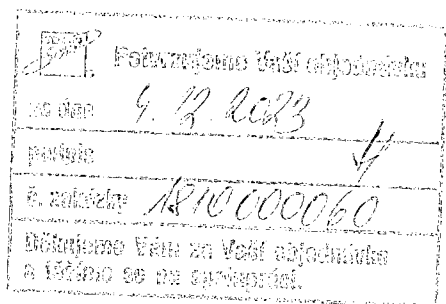 Potvrzujeme Vaši objednávku
ze dne 4. 12. 2023
podpis
č. zakázky 1810000060
Děkujeme Vám za Vaši objednávku
a těšíme se na spolupráci.